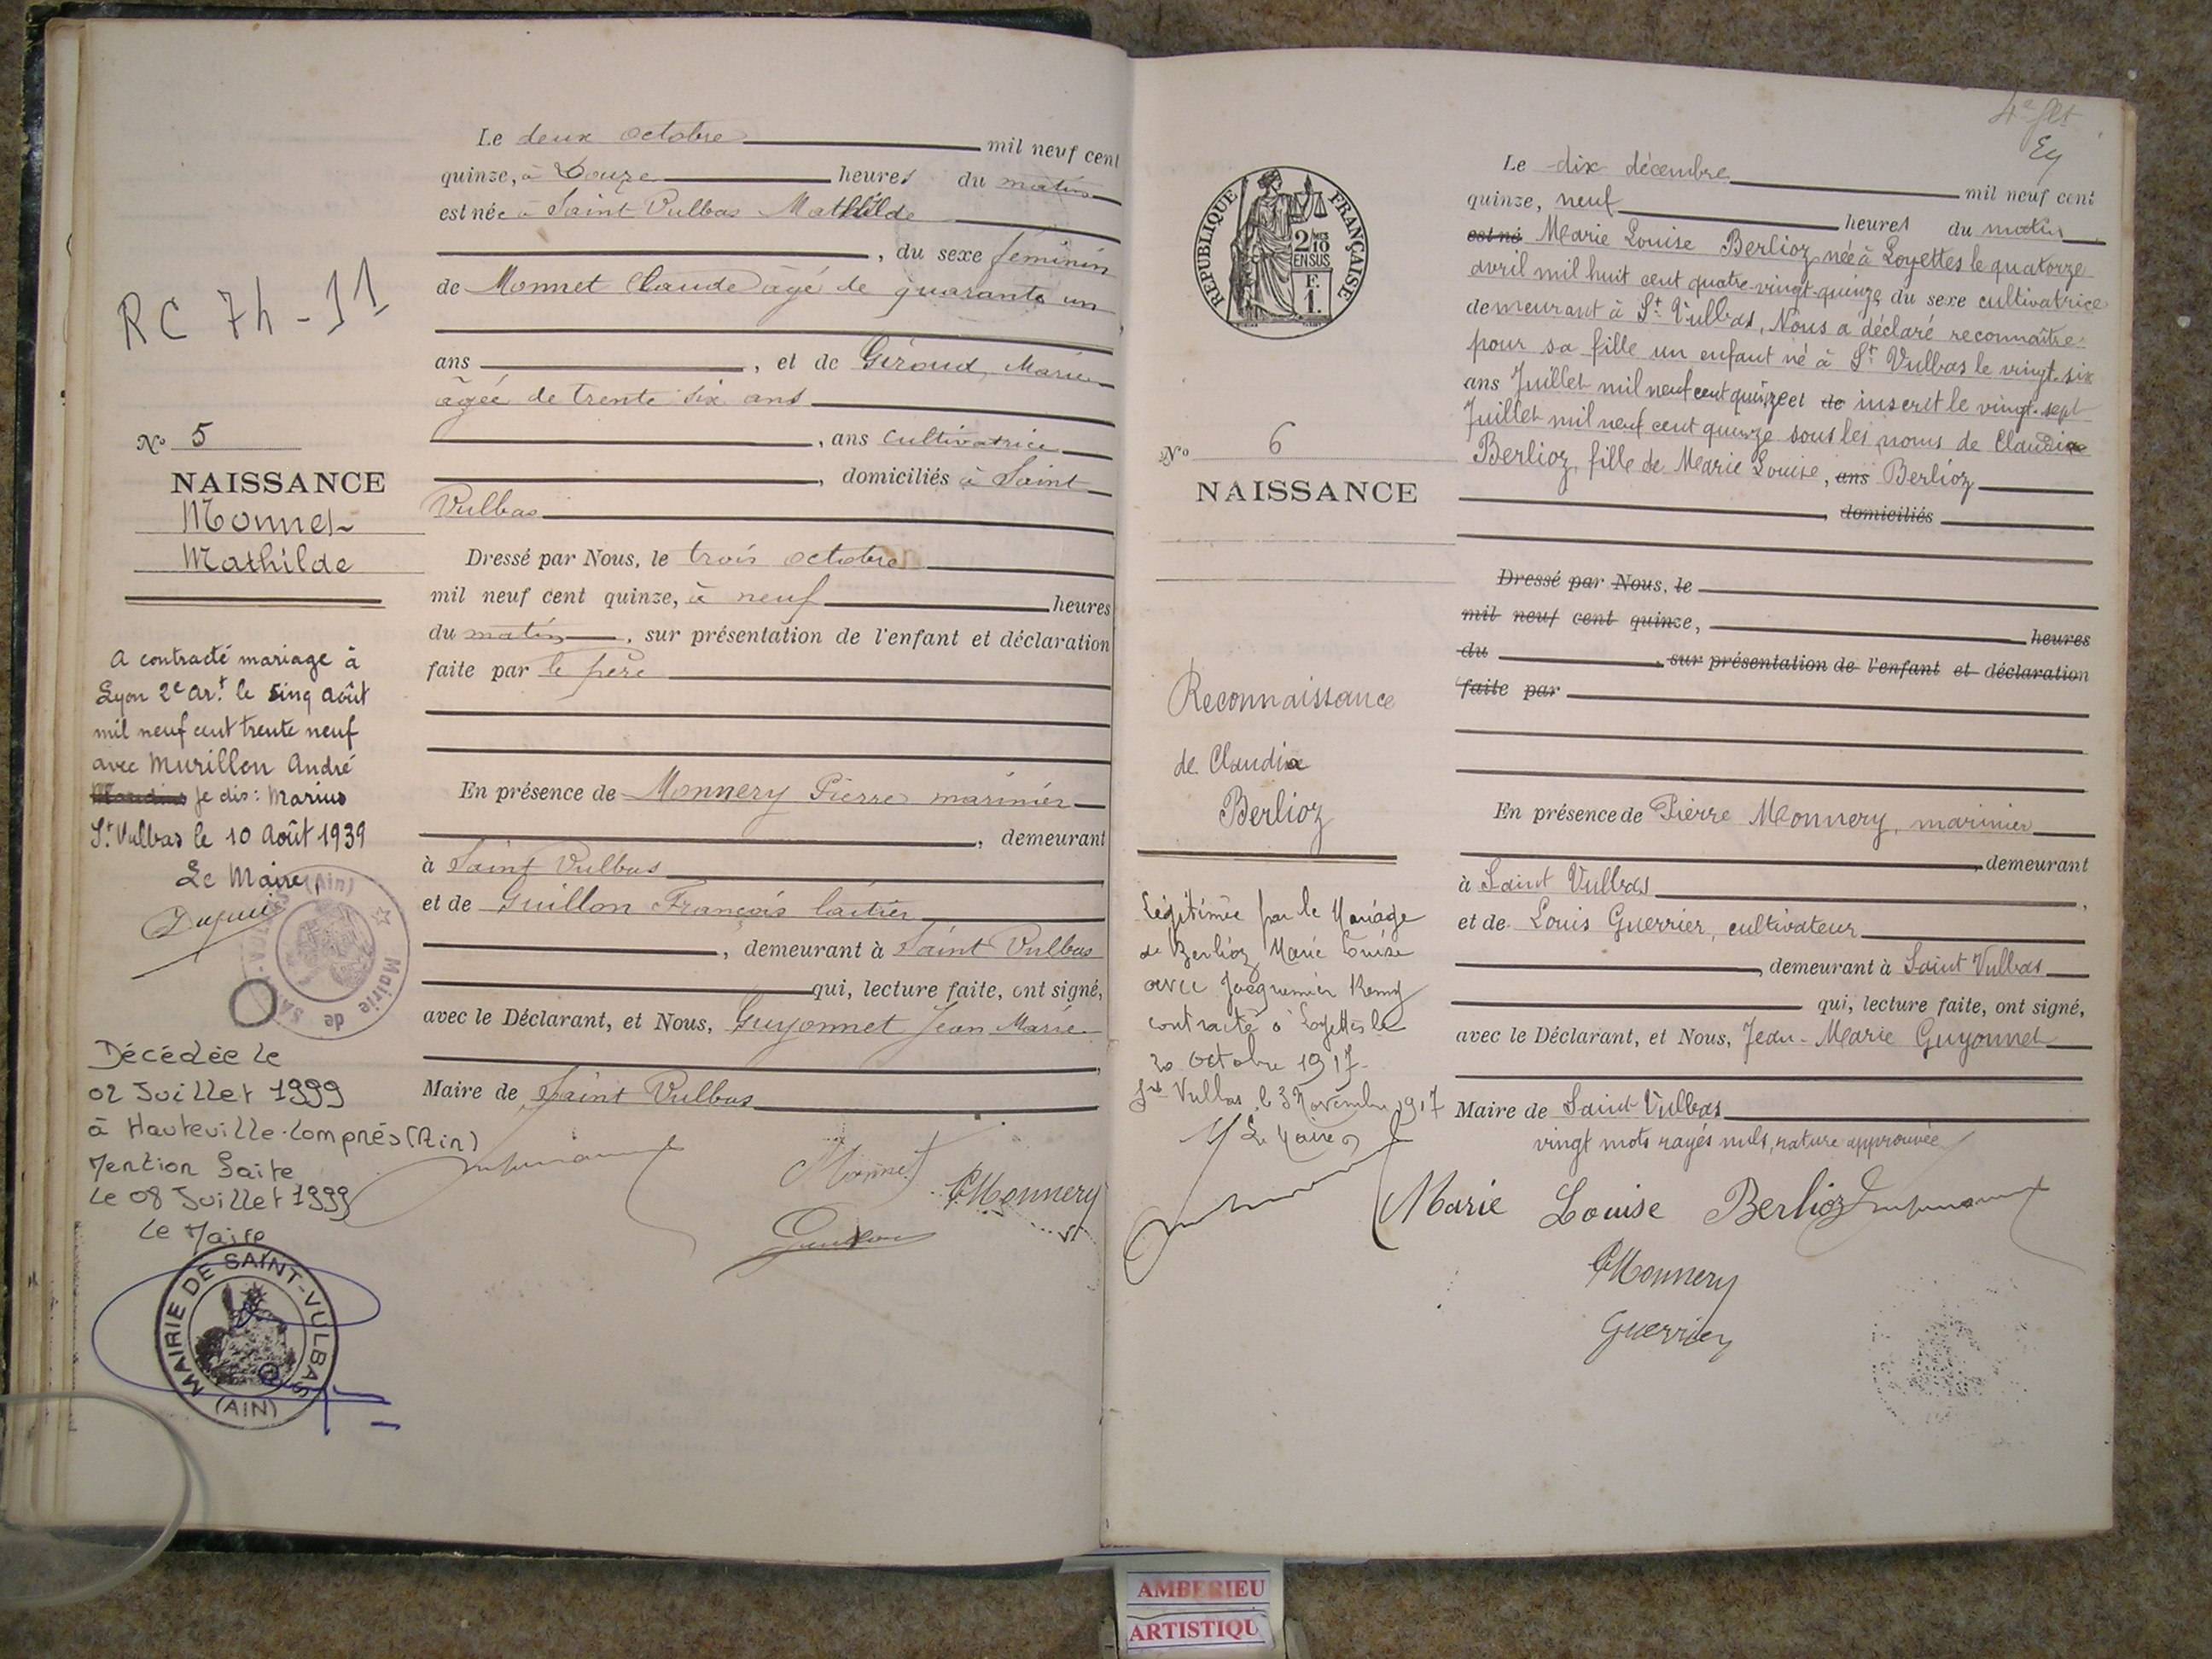 RC 74-11
Nº 5
NAISSANCE
Monnet
Mathilde
A contracté mariage à
Lyon 2e Art le cinq août
mil neuf cent trente neuf
avec Murillon André
je dis : Marius
St Vulbas le 10 Août 1939
Le Maire,
Mairie de SAINT-VULBAS (Ain)
Décédée le
02 Juillet 1999
à Hauteville-Lompnés (Ain)
Mention faite
le 08 Juillet 1999
Le Maire
MAIRIE DE SAINT-VULBAS
(AIN)
Le deux octobre mil neuf cent
quinze, à Douze heures du matin
est née à Saint Vulbas Mathilde
, du sexe féminin
de Monnet Claude âgé de quarante un
ans , et de Giroud, Marie
âgée de trente six ans
, ans cultivatrice
, domiciliés à Saint
Vulbas
Dressé par Nous, le trois octobre
mil neuf cent quinze, à neuf heures
du matin , sur présentation de l'enfant et déclaration
faite par le père
En présence de Monnery Pierre marinier
, demeurant
à Saint Vulbas
et de Guillon François laitier
, demeurant à Saint Vulbas
qui, lecture faite, ont signé,
avec le Déclarant, et Nous, Guyonnet Jean Marie
,
Maire de Saint Vulbas
Monnet
PMonnery
Guillon
4e flt
REPUBLIQUE FRANÇAISE
2/10 MES
EN SUS
F.
1.
Nº 6
NAISSANCE
Reconnaissance
de Claudia
Berlioz
Légitimée par le Mariage
de Berlioz Marie Louise
avec Jacquemier Remy
contracté à Loyettes le
20 octobre 1917-
St Vulbas, le 3 Novembre 1917
Le Maire
Le dix décembre mil neuf cent
quinze, neuf heures du matin
est né Marie Louise Berlioz née à Loyettes le quatorze
avril mil huit cent quatre-vingt-quinze du sexe cultivatrice
demeurant à St Vulbas, Nous a déclaré reconnaître
pour sa fille un enfant né à St Vulbas le vingt-six
ans Juillet mil neuf cent quinze et de inscrit le vingt-sept
Juillet mil neuf cent quinze sous les noms de Claudia
Berlioz, fille de Marie Louise, ans Berlioz
, domiciliés
Dressé par Nous, le
mil neuf cent quinze, heures
du , sur présentation de l'enfant et déclaration
faite par
En présence de Pierre Monnery, marinier
, demeurant
à Saint Vulbas ,
et de Louis Guerrier, cultivateur
, demeurant à Saint Vulbas
qui, lecture faite, ont signé,
avec le Déclarant, et Nous, Jean-Marie Guyonnet
Maire de Saint Vulbas
vingt mots rayés nuls, rature approuvée
Marie Louise Berlioz
PMonnery
Guerrier
AMBERIEU
ARTISTIQU